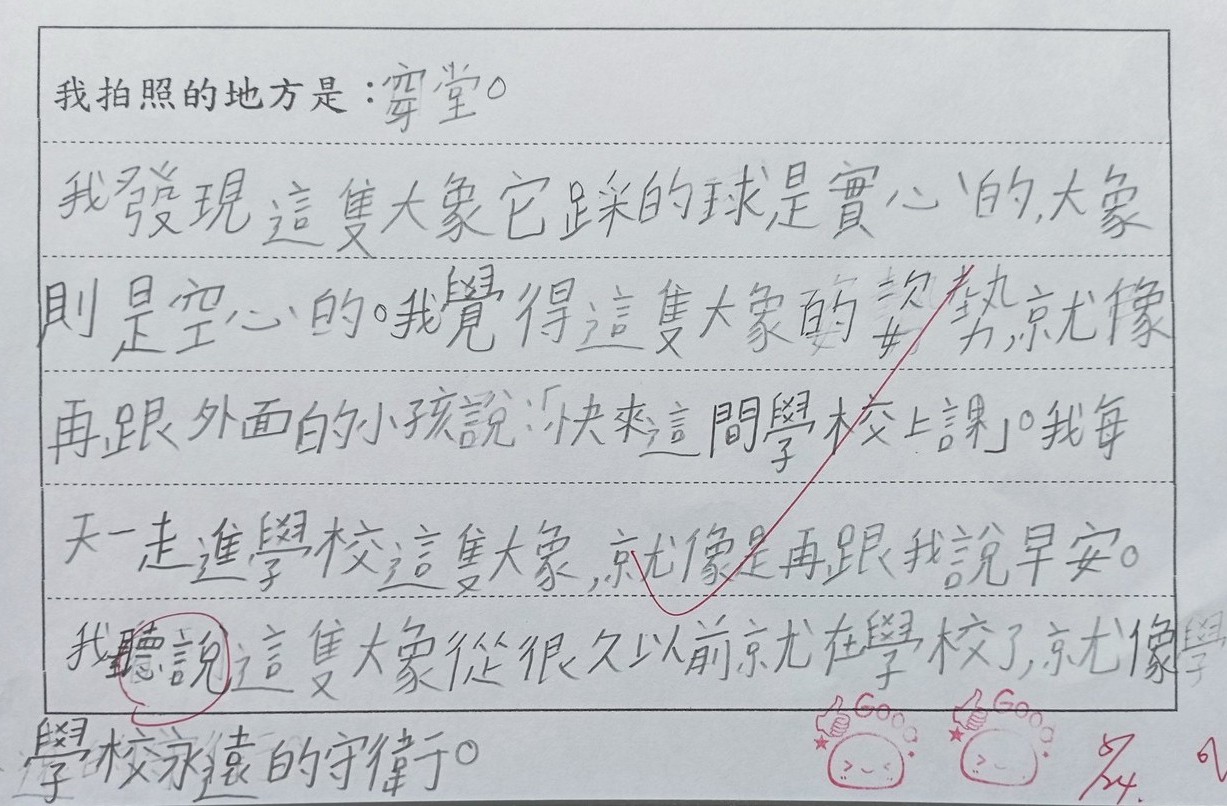 我拍照的地方是：穿堂。
我發現這隻大象它踩的球是實心的,大象
則是空心的。我覺得這隻大象的姿勢,就像
再跟外面的小孩說：「快來這間學校上課」。我每
天一走進學校這隻大象,就像是再跟我說早安。
我聽說這隻大象從很久以前就在學校了,就像學
學校永遠的守衛。
GOOD GOOD
5/24.